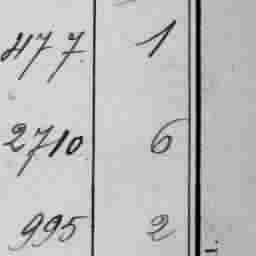 477 1
2710 6
995 2